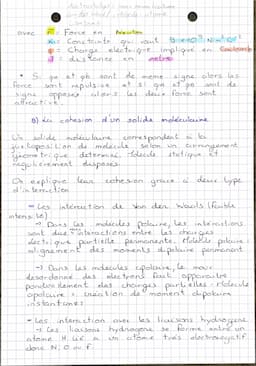 avec F = Force en Newton
Constante qui vaut
q = Charge électrique impliqué en Coulomb
d = distance en mètre
• Si qa et qb sont de même signe alors les
force sont répulsive et si qa et qb sont de
signe opposés alors les deux force sont
attractive.
B) La cohésion d'un solide moléculaire
Un solide moléculaire correspondent à la
juxtaposition de molécule selon un arrangement
géométrique déterminé, molécule statique et
régulièrement disposés.
On explique leur cohésion grace à deux type
d'interaction
- Les intéraction de Van der Waals (faible
intensité)
→ Dans les molécules polaire, les intéractions
sont due interactions entre les charges
électrique partielle permanente. Molécule polaire :
alignement des moments dipolaire permanent
→ Dans les molécules apolaire, le mouv
désordonnée des électrons fait apparaître
ponctuellement des charges partielles. Molécule
apolaire : création de moment dipolaire
instantané
- Les intéraction avec les liaisons hydrogène
→ Les liaisons hydrogène se forme entre un
atome H lié à un atome très électronégatif
donc N, O ou F.